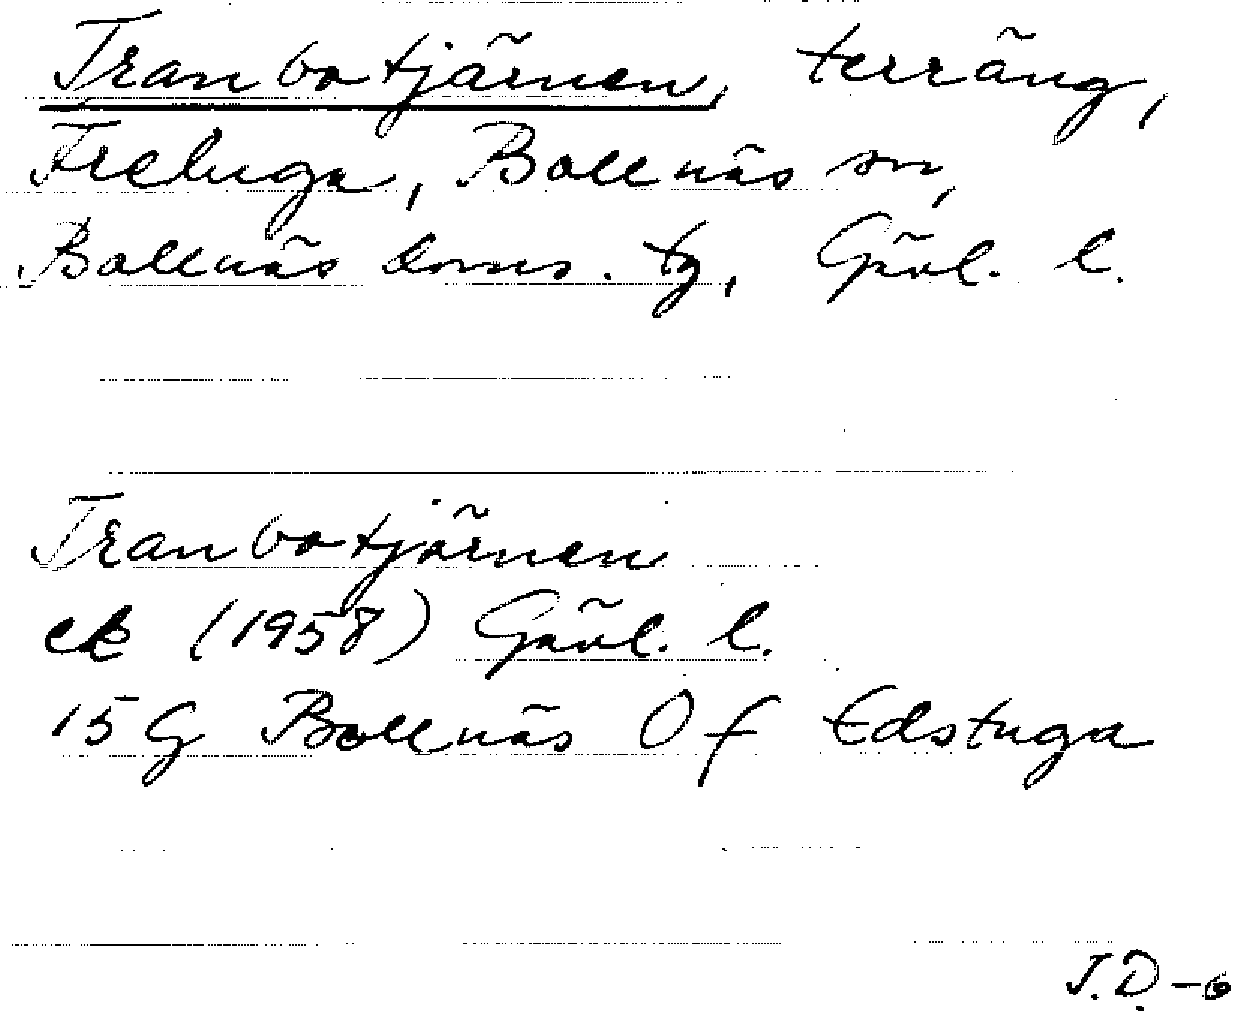 Tranbotjärnen, terräng,
Freluga, Bollnäs sn,
Bollnäs doms. tg, Gävl. l.
Tranbotjärnen
ek (1958) Gävl. l.
15 G Bollnäs 0 f Edstuga
J.D-6